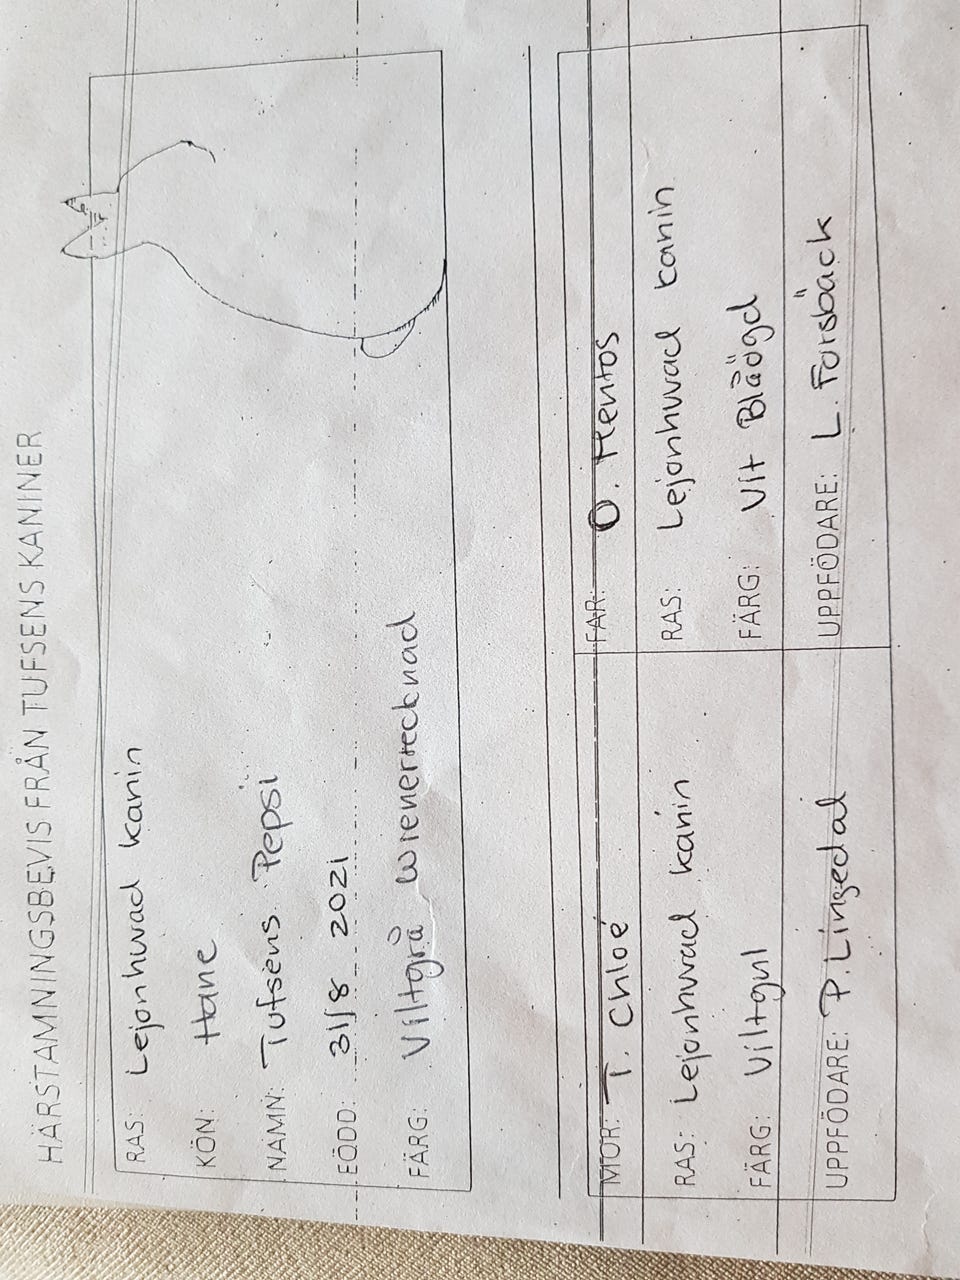 HÄRSTAMNINGSBEVIS FRÅN TUFSENS KANINER
RAS: Lejonhuvad kanin
KÖN: Hane
NAMN: Tufsens Pepsi
FÖDD: 31/8 2021
FÄRG: Viltgrå Wienertecknad
MOR: T. Chloé
RAS: Lejonhuvad kanin
FÄRG: Viltgul
UPPFÖDARE: P. Lingedal
FAR: O. Mentos
RAS: Lejonhuvad kanin
FÄRG: Vit Blåögd
UPPFÖDARE: L. Forsbäck